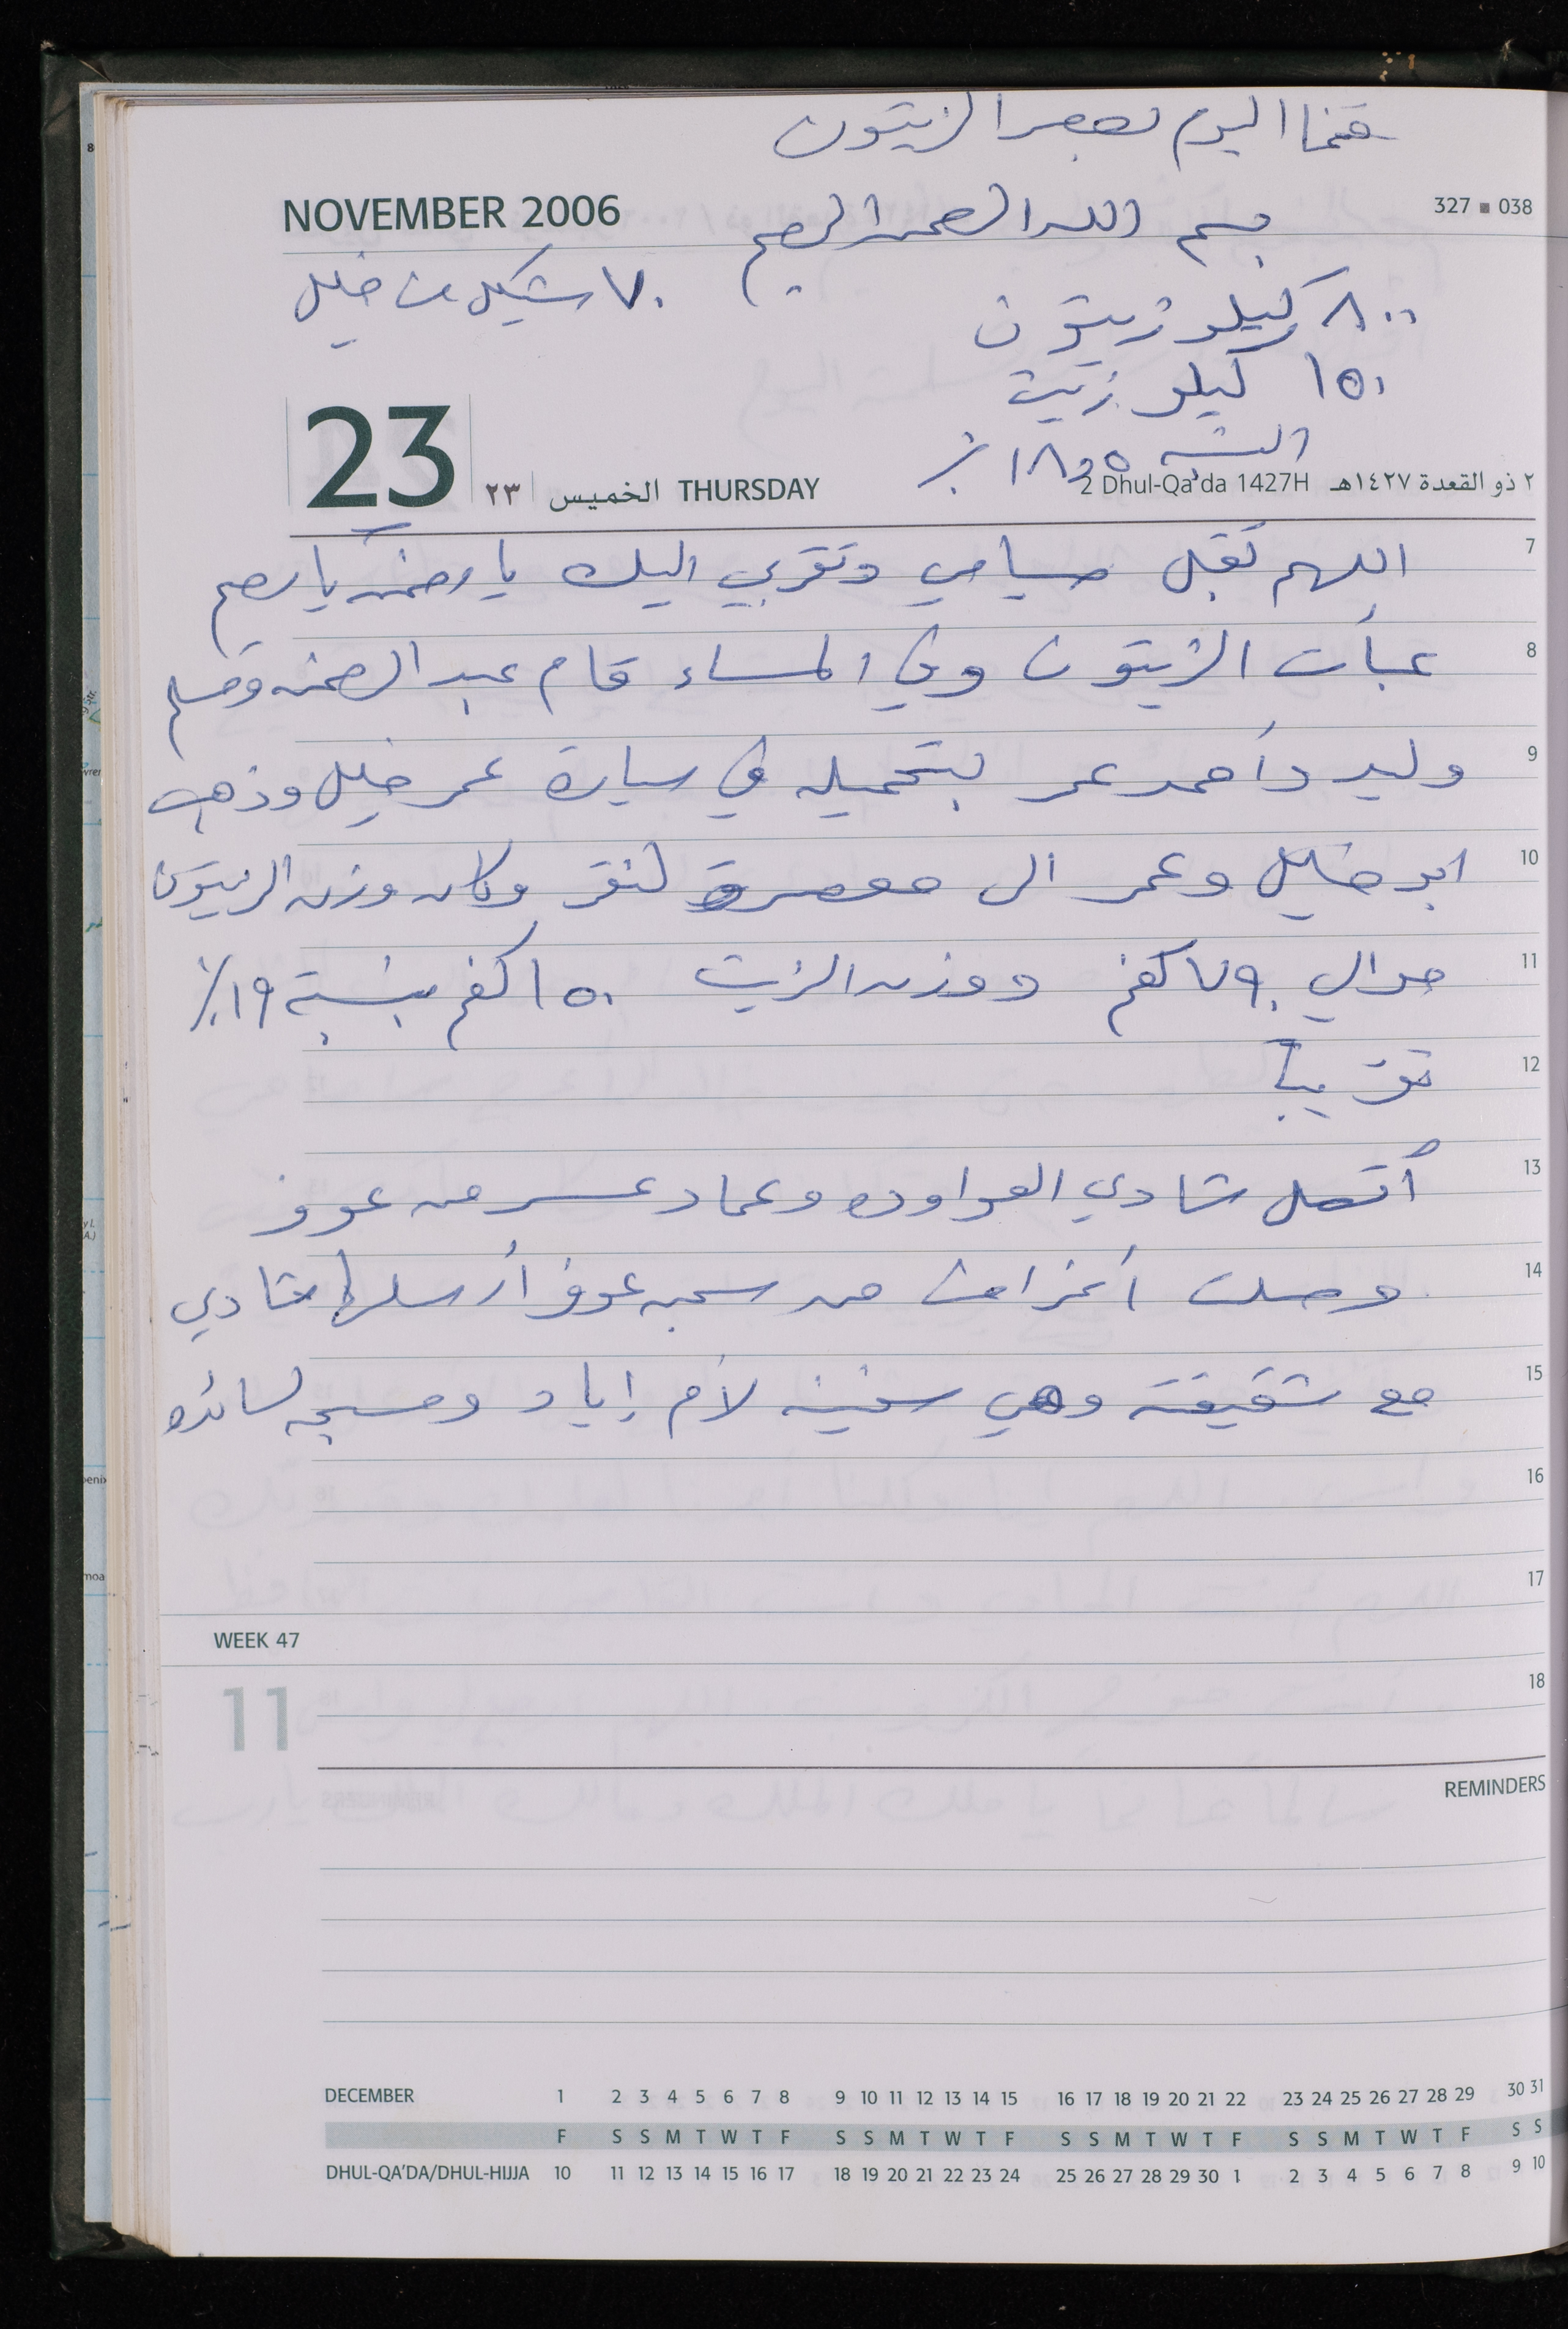 قمنا اليوم بعصر الزيتون
NOVEMBER 2006
327 ■ 038
بسم الله الرحمن الرحيم
٧٠ شيكل من خليل
٨٠٠ كيلو زيتون
١٥٠ كيلو زيت
النسبه ١٨,٥ ٪
23
٢٣ الخميس THURSDAY
2 Dhul-Qa'da 1427H ٢ ذو القعدة ١٤٢٧هـ
7
اللهم تقبل صيامي وتقربي اليك يا رحمن يا رحيم
8
عبأت الزيتون وفي المساء قام عبد الرحمن
9
وليد وأحمد عمر بتحميله في سيارة عمر خليل وذهب
10
ابو خليل وعمر الى معصرة وكان وزن الزيتون
11
حوالي ٧٩٠ كغم ووزن الزيت ١٥٠ كغم بنسبة ١٩٪
12
تقريباً
13
أتصل شادي العواوده وعماد عسر من عوفر
14
وصلت اغراض من سجن عوفر أرسلها شادي
15
مع شقيقه وهي سفينه لأم إياد ومسبحه لسائده
16
17
WEEK 47
11
18
REMINDERS
DECEMBER 1 2 3 4 5 6 7 8 9 10 11 12 13 14 15 16 17 18 19 20 21 22 23 24 25 26 27 28 29 30 31
F S S M T W T F S S M T W T F S S M T W T F S S M T W T F S S
DHUL-QA'DA/DHUL-HIJJA 10 11 12 13 14 15 16 17 18 19 20 21 22 23 24 25 26 27 28 29 30 1 2 3 4 5 6 7 8 9 10